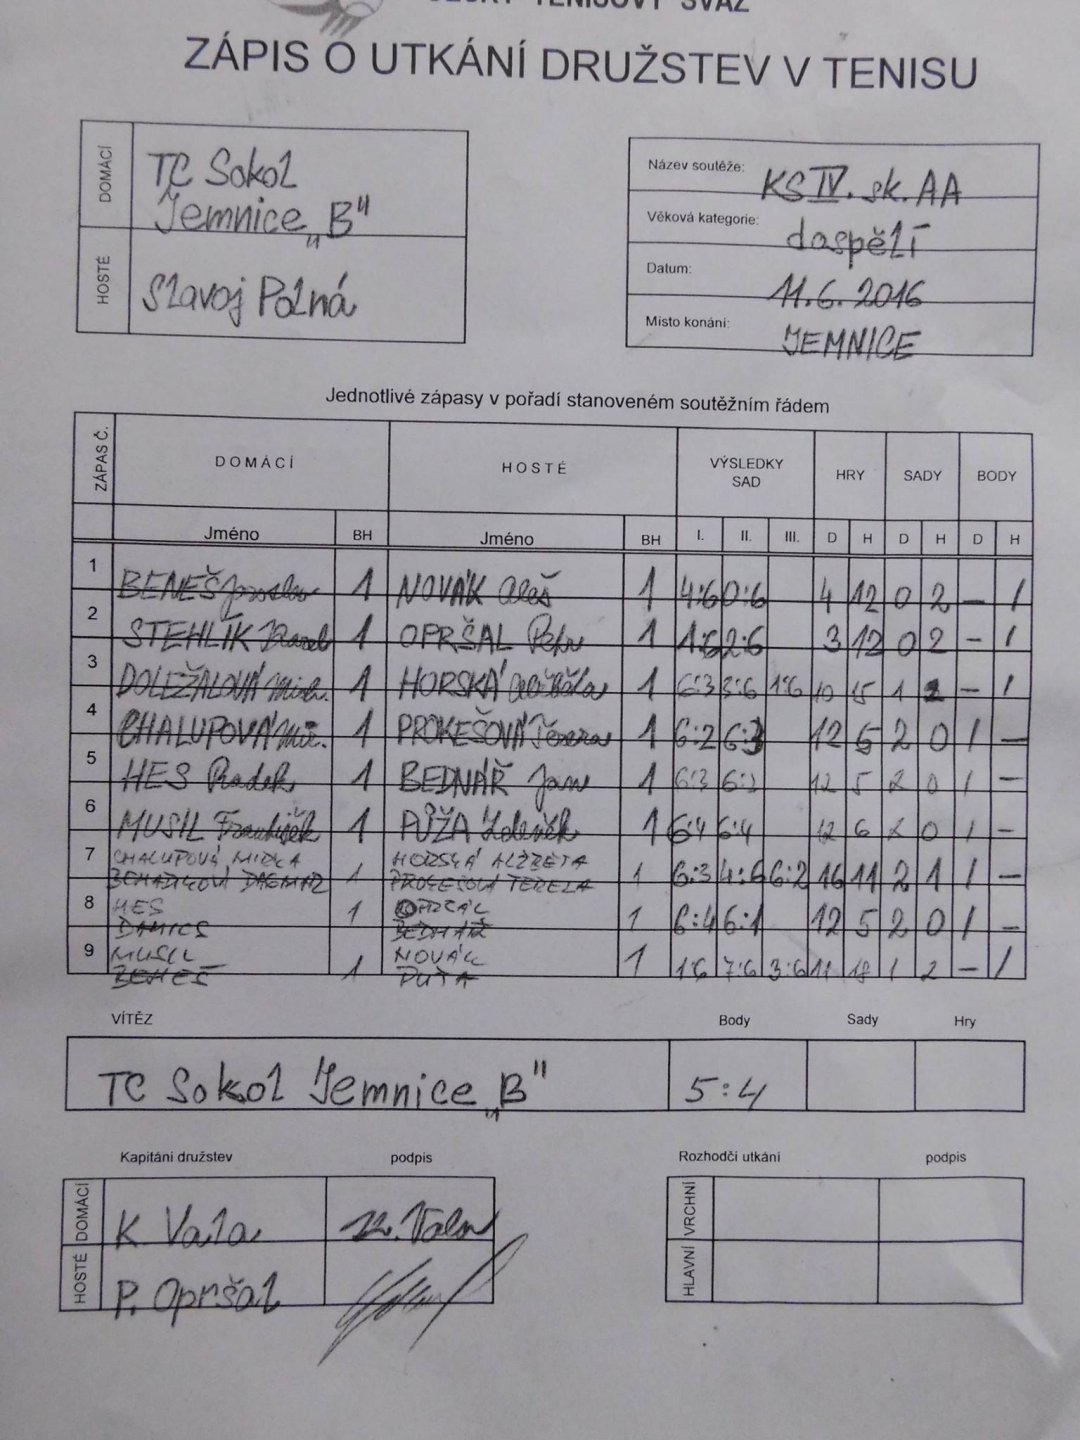 ČESKÝ TENISOVÝ SVAZ
ZÁPIS O UTKÁNÍ DRUŽSTEV V TENISU
DOMÁCÍ TC Sokol
Jemnice „B"
HOSTÉ Slavoj Polná
Název soutěže: KS IV. sk. AA
Věková kategorie: dospělí
Datum: 11.6.2016
Místo konání: JEMNICE
Jednotlivé zápasy v pořadí stanoveném soutěžním řádem
ZÁPAS Č. DOMÁCÍ HOSTÉ VÝSLEDKY SAD HRY SADY BODY
Jméno BH Jméno BH I. II. III. D H D H D H
1 BENEŠ Jaroslav 1 NOVÁK Aleš 1 4:6 0:6 4 12 0 2 – 1
2 STEHLÍK Karel 1 OPRŠAL Petr 1 1:6 2:6 3 12 0 2 – 1
3 DOLEŽALOVÁ 1 HORSKÁ Alžběta 1 6:3 3:6 1:6 10 15 1 2 – 1
4 CHALUPOVÁ Mir. 1 PROKEŠOVÁ Tereza 1 6:2 6:3 12 5 2 0 1 –
5 HES Radek 1 BEDNÁŘ Jan 1 6:3 6:2 12 5 2 0 1 –
6 MUSIL František 1 PŮŽA Zdeněk 1 6:4 6:4 12 6 2 0 1 –
7 CHALUPOVÁ MIRKA 1 HORSKÁ ALŽBĚTA 1 6:3 4:6 6:2 16 11 2 1 1 –
DAGMAR PROKEŠOVÁ TEREZA
8 HES 1 OPRŠAL 1 6:4 6:1 12 5 2 0 1 –
BEDNÁŘ
9 MUSIL 1 NOVÁK 1 1:6 7:6 3:6 11 18 1 2 – 1
BENEŠ PŮŽA
VÍTĚZ Body Sady Hry
TC Sokol Jemnice „B" 5:4
Kapitáni družstev podpis Rozhodčí utkání podpis
DOMÁCÍ K Vala VRCHNÍ
HOSTÉ P. Opršal HLAVNÍ